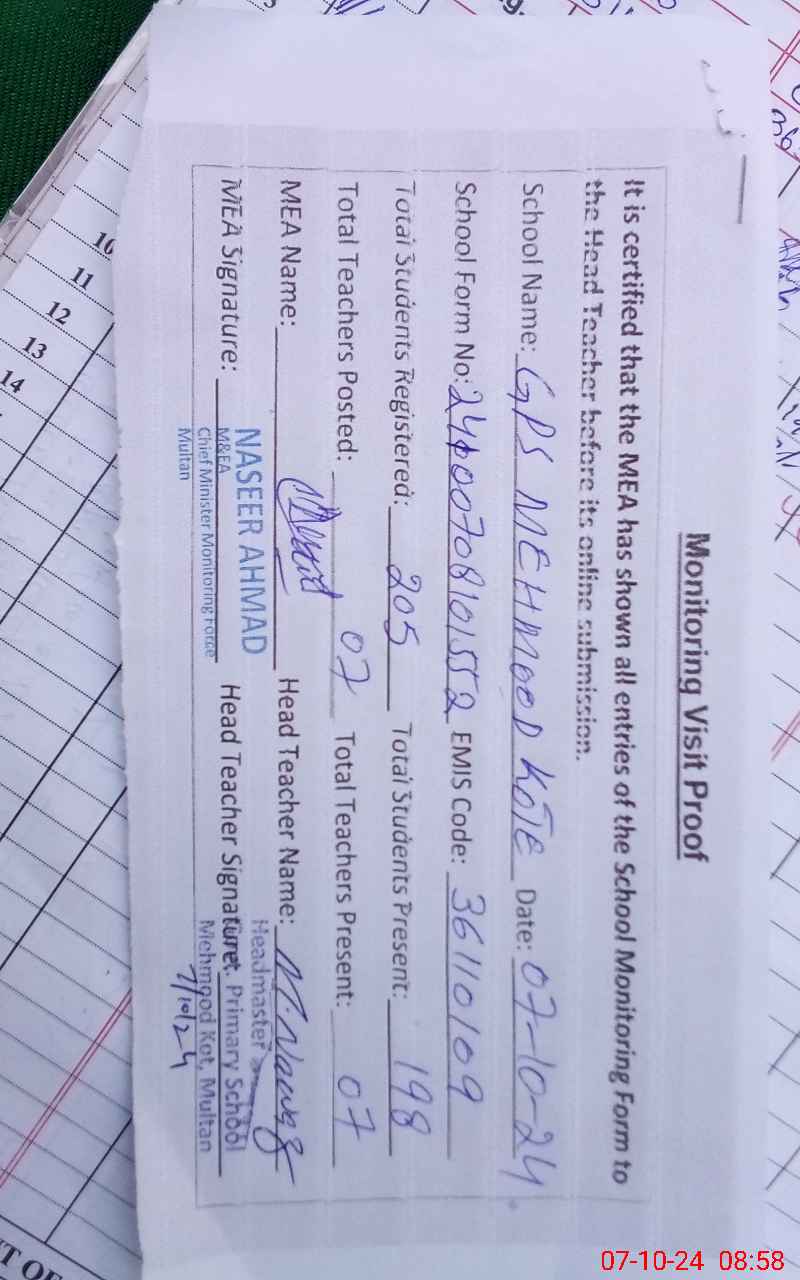 Monitoring Visit Proof
It is certified that the MEA has shown all entries of the School Monitoring Form to
the Head Teacher before its online submission.
School Name: GPS MEHMOOD KOTE Date: 07-10-24
School Form No: EMIS Code: 36110109
Total Students Registered: 205 Total Students Present: 198
Total Teachers Posted: 07 Total Teachers Present: 07
MEA Name: Head Teacher Name: M. Nawaz
MEA Signature: Head Teacher Signature:
NASEER AHMAD
M&EA
Chief Minister Monitoring Force
Multan
Headmaster
Primary School
Mehmood Kot, Multan
7/10/24
10
11
12
13
14
07-10-24 08:58